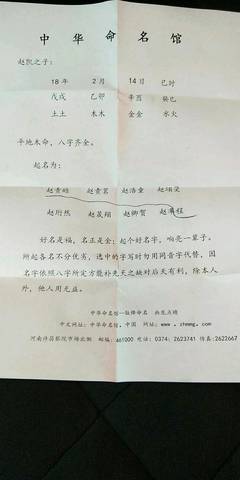 中华命名馆
赵凯之子:
18年 2月 14日 巳时
戊戌 乙卯 辛酉 癸巳
土土 木木 金金 水火
平地木命,八字齐全。
起名为:
赵青 赵贵茗 赵浩童 赵
赵珩然 赵晟翔 赵卿贺 赵程
好名是福,名正是金;起个好名字,响亮一辈子。
所起各名不分优劣,选中的字写时勿用同音字代替,因
名字依照八字所定方能补先天之缺对后天有利,除本人
外,他人用无益。
中华命名馆--驻禅命名
中文网址:中华命名馆.中国 网址:www.zhmmg.com
河南许昌 邮编:461000 电话:0374:2623741 传真:2622667